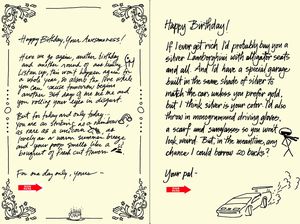 Happy Birthday, Your Awesomeness!
Here we go again, another birthday
and another round of
Listen up, this won't happen again for
a whole year, so
you can 'cause tomorrow begins
another 364 days of me being me and
you rolling your eyes in disgust.
But for today and only today
you are as striking as a
rare as a unicorn
lovely as a warm summer breeze
and your poop smells like a
bouquet of fresh cut flowers.
For one day only, yours —
Happy Birthday!
If I ever get rich I'd probably buy you a
silver Lamborghini with alligator seats
and all. And I'd have a special garage
built in the same shade of silver to
match the car unless you prefer gold,
but I think silver is your color. I'd also
throw in monogrammed driving gloves,
a scarf and sunglasses so you won't
look weird. But, in the meantime, any
chance I could borrow 20 bucks?
Your pal -